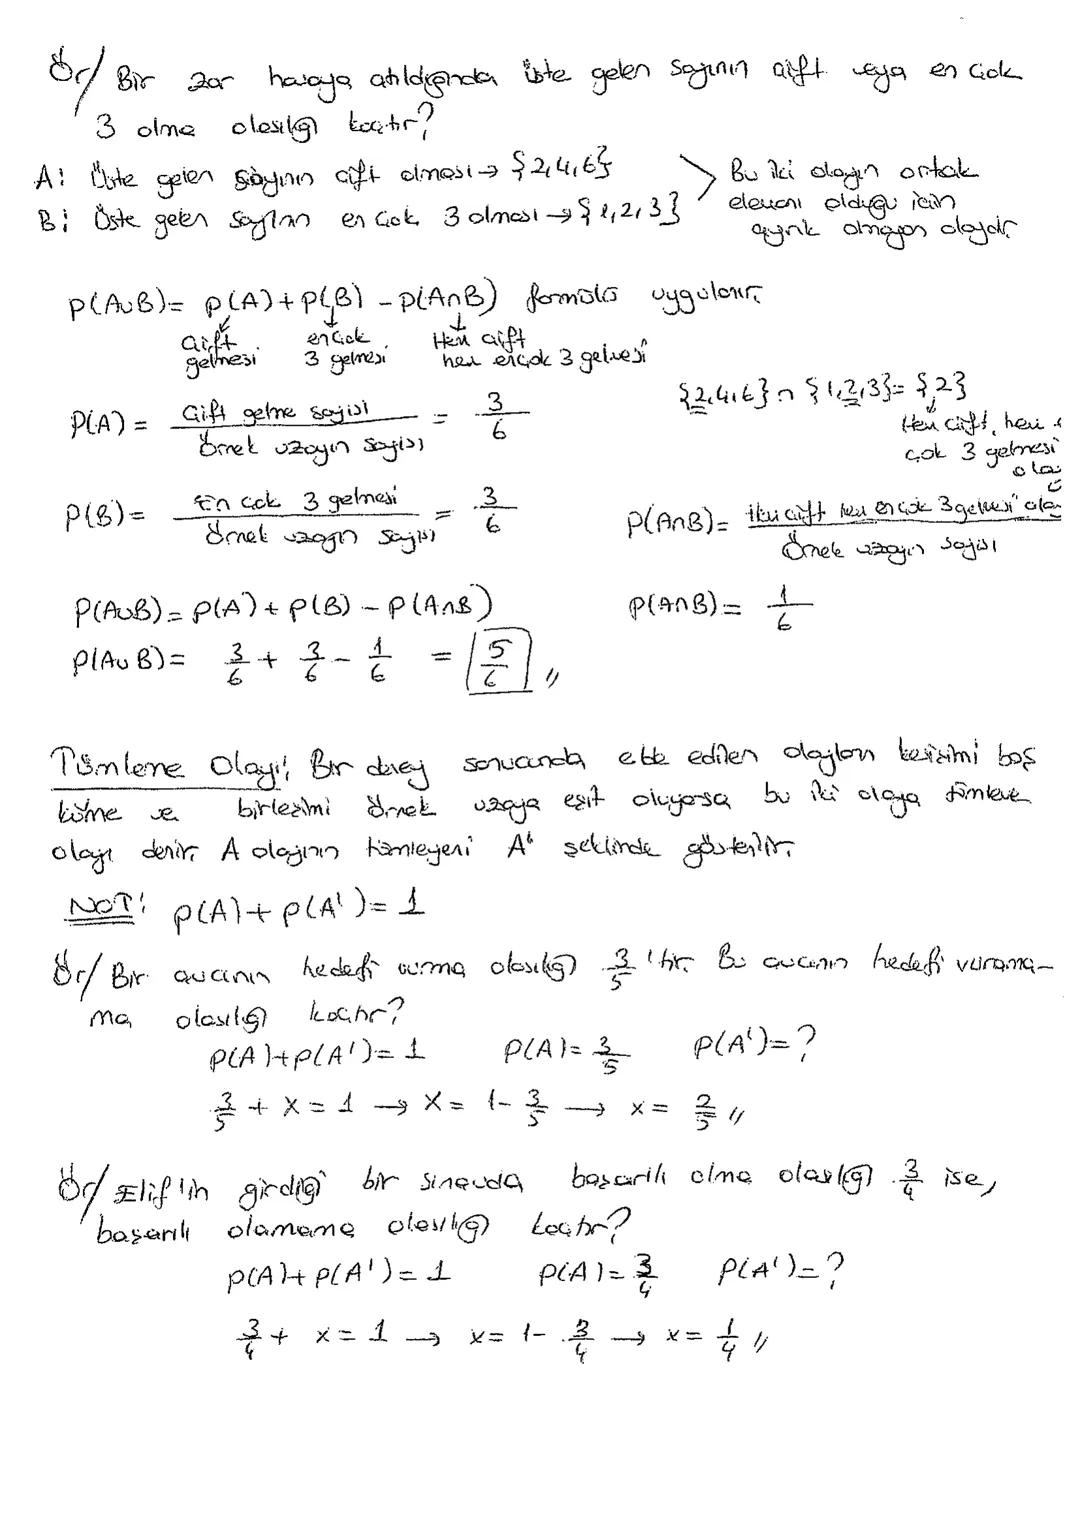 Ör/ Bir zar havaya atıldığında üste gelen sayının çift veya en çok
3 olma olasılığı kaçtır?
A: Üste gelen sayının çift olması → {2,4,6}
B: Üste gelen sayının en çok 3 olması → {1,2,3}
> Bu iki olayın ortak
elemanı olduğu için
ayrık olmayan olaydır.
P(A∪B) = P(A) + P(B) - P(A∩B) formülü uygulanır.
çift gelmesi
en çok 3 gelmesi
Hem çift hem en çok 3 gelmesi
{2,4,6} ∩ {1,2,3} = {2}
Hem çift, hem
çok 3 gelmesi
P(A) = Çift gelme sayısı / Örnek uzayın sayısı = 3/6
P(B) = En çok 3 gelmesi / Örnek uzayın sayısı = 3/6
P(A∩B) = Hem çift hem en çok 3 gelmesi / Örnek uzayın sayısı
P(A∪B) = P(A) + P(B) - P(A∩B)
P(A∩B) = 1/6
P(A∪B) = 3/6 + 3/6 - 1/6 = 5/6 //
Tümleme Olayı: Bir deney sonucunda elde edilen olayların kesişimi boş
küme ve birleşimi örnek uzaya eşit oluyorsa bu iki olaya tümleme
olayı denir. A olayının tümleyeni A' şeklinde gösterilir.
NOT: P(A) + P(A') = 1
Ör/ Bir avcının hedefi vurma olasılığı 3/5 'tir. Bu avcının hedefi vurama-
ma olasılığı kaçtır?
P(A) + P(A') = 1 P(A) = 3/5 P(A') = ?
3/5 + x = 1 → x = 1 - 3/5 → x = 2/5 //
Ör/ Elif'in girdiği bir sınavda başarılı olma olasılığı 3/4 ise,
başarılı olamama olasılığı kaçtır?
P(A) + P(A') = 1 P(A) = 3/4 P(A') = ?
3/4 + x = 1 → x = 1 - 3/4 → x = 1/4 //